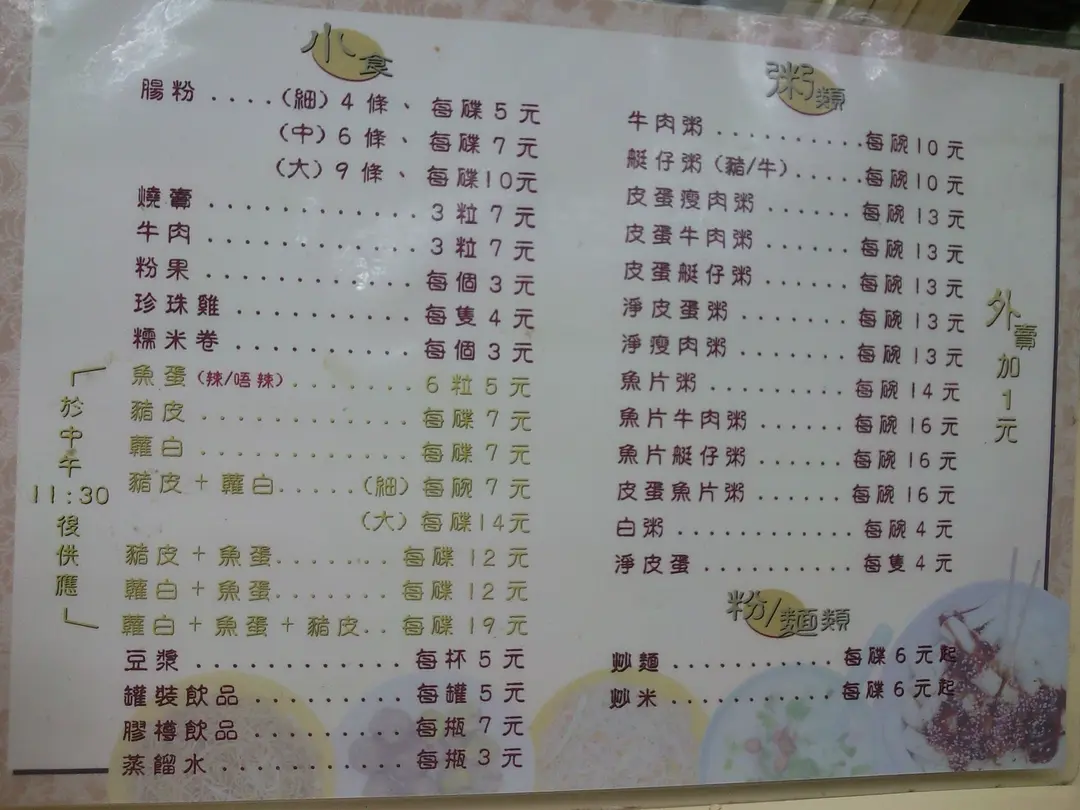 小食
腸粉....(細)4條、每碟5元
(中)6條、每碟7元
(大)9條、每碟10元
燒賣.............3粒7元
牛肉.............3粒7元
粉果.............每個3元
珍珠雞...........每隻4元
糯米卷...........每個3元
魚蛋(辣/唔辣)........6粒5元
豬皮.............每碟7元
蘿白.............每碟7元
豬皮+蘿白.....(細)每碗7元
(大)每碟14元
豬皮+魚蛋.......每碟12元
蘿白+魚蛋.......每碟12元
蘿白+魚蛋+豬皮..每碟19元
豆漿.............每杯5元
罐裝飲品..........每罐5元
膠樽飲品..........每瓶7元
蒸餾水............每瓶3元
「於中午11:30後供應」
粥類
牛肉粥..........每碗10元
艇仔粥(豬/牛).....每碗10元
皮蛋瘦肉粥......每碗13元
皮蛋牛肉粥......每碗13元
皮蛋艇仔粥......每碗13元
淨皮蛋粥.......每碗13元
淨瘦肉粥.......每碗13元
魚片粥........每碗14元
魚片牛肉粥......每碗16元
魚片艇仔粥......每碗16元
皮蛋魚片粥......每碗16元
白粥...........每碗4元
淨皮蛋.........每隻4元
粉/麵類
炒麵...........每碟6元起
炒米...........每碟6元起
外賣加1元